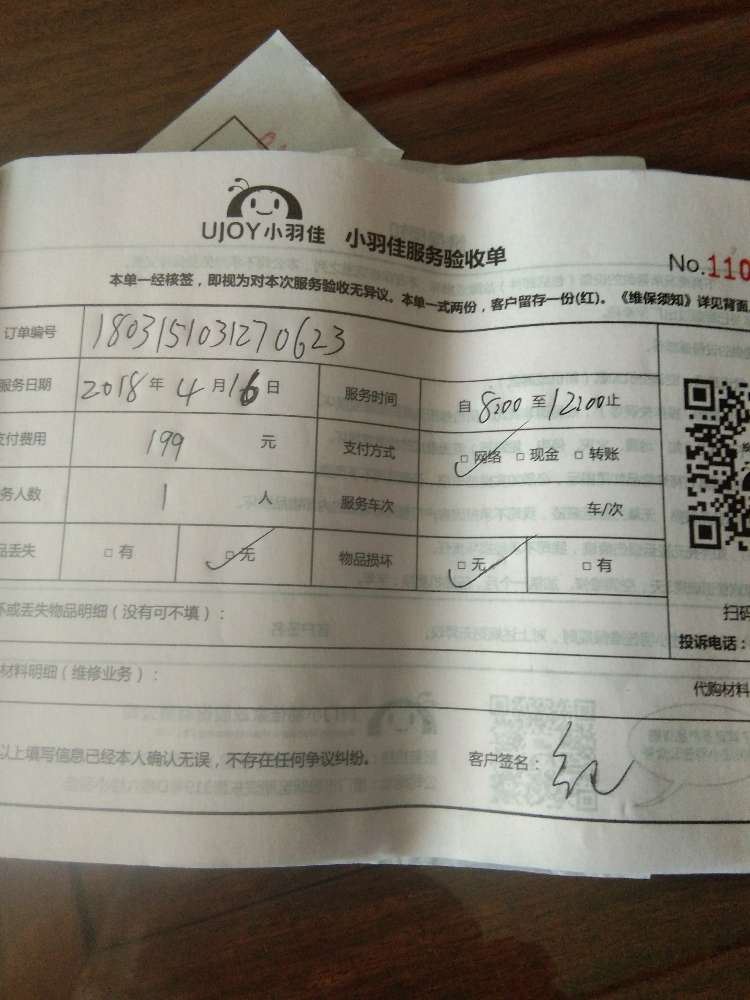 UJOY小羽佳 小羽佳服务验收单
No.110
本单一经核签，即视为对本次服务验收无异议。本单一式两份，客户留存一份(红)。《维保须知》详见背面
订单编号 180315103127０623
服务日期 2018年4月16日 服务时间 自8:00至12:00止
支付费用 199 元 支付方式 □网络 □现金 □转账
务人数 1 人 服务车次 车/次
品丢失 □有 □无 物品损坏 □无 □有
坏或丢失物品明细（没有可不填）：
扫码
投诉电话：
材料明细（维修业务）：
代购材料
以上填写信息已经本人确认无误，不存在任何争议纠纷。 客户签名：红